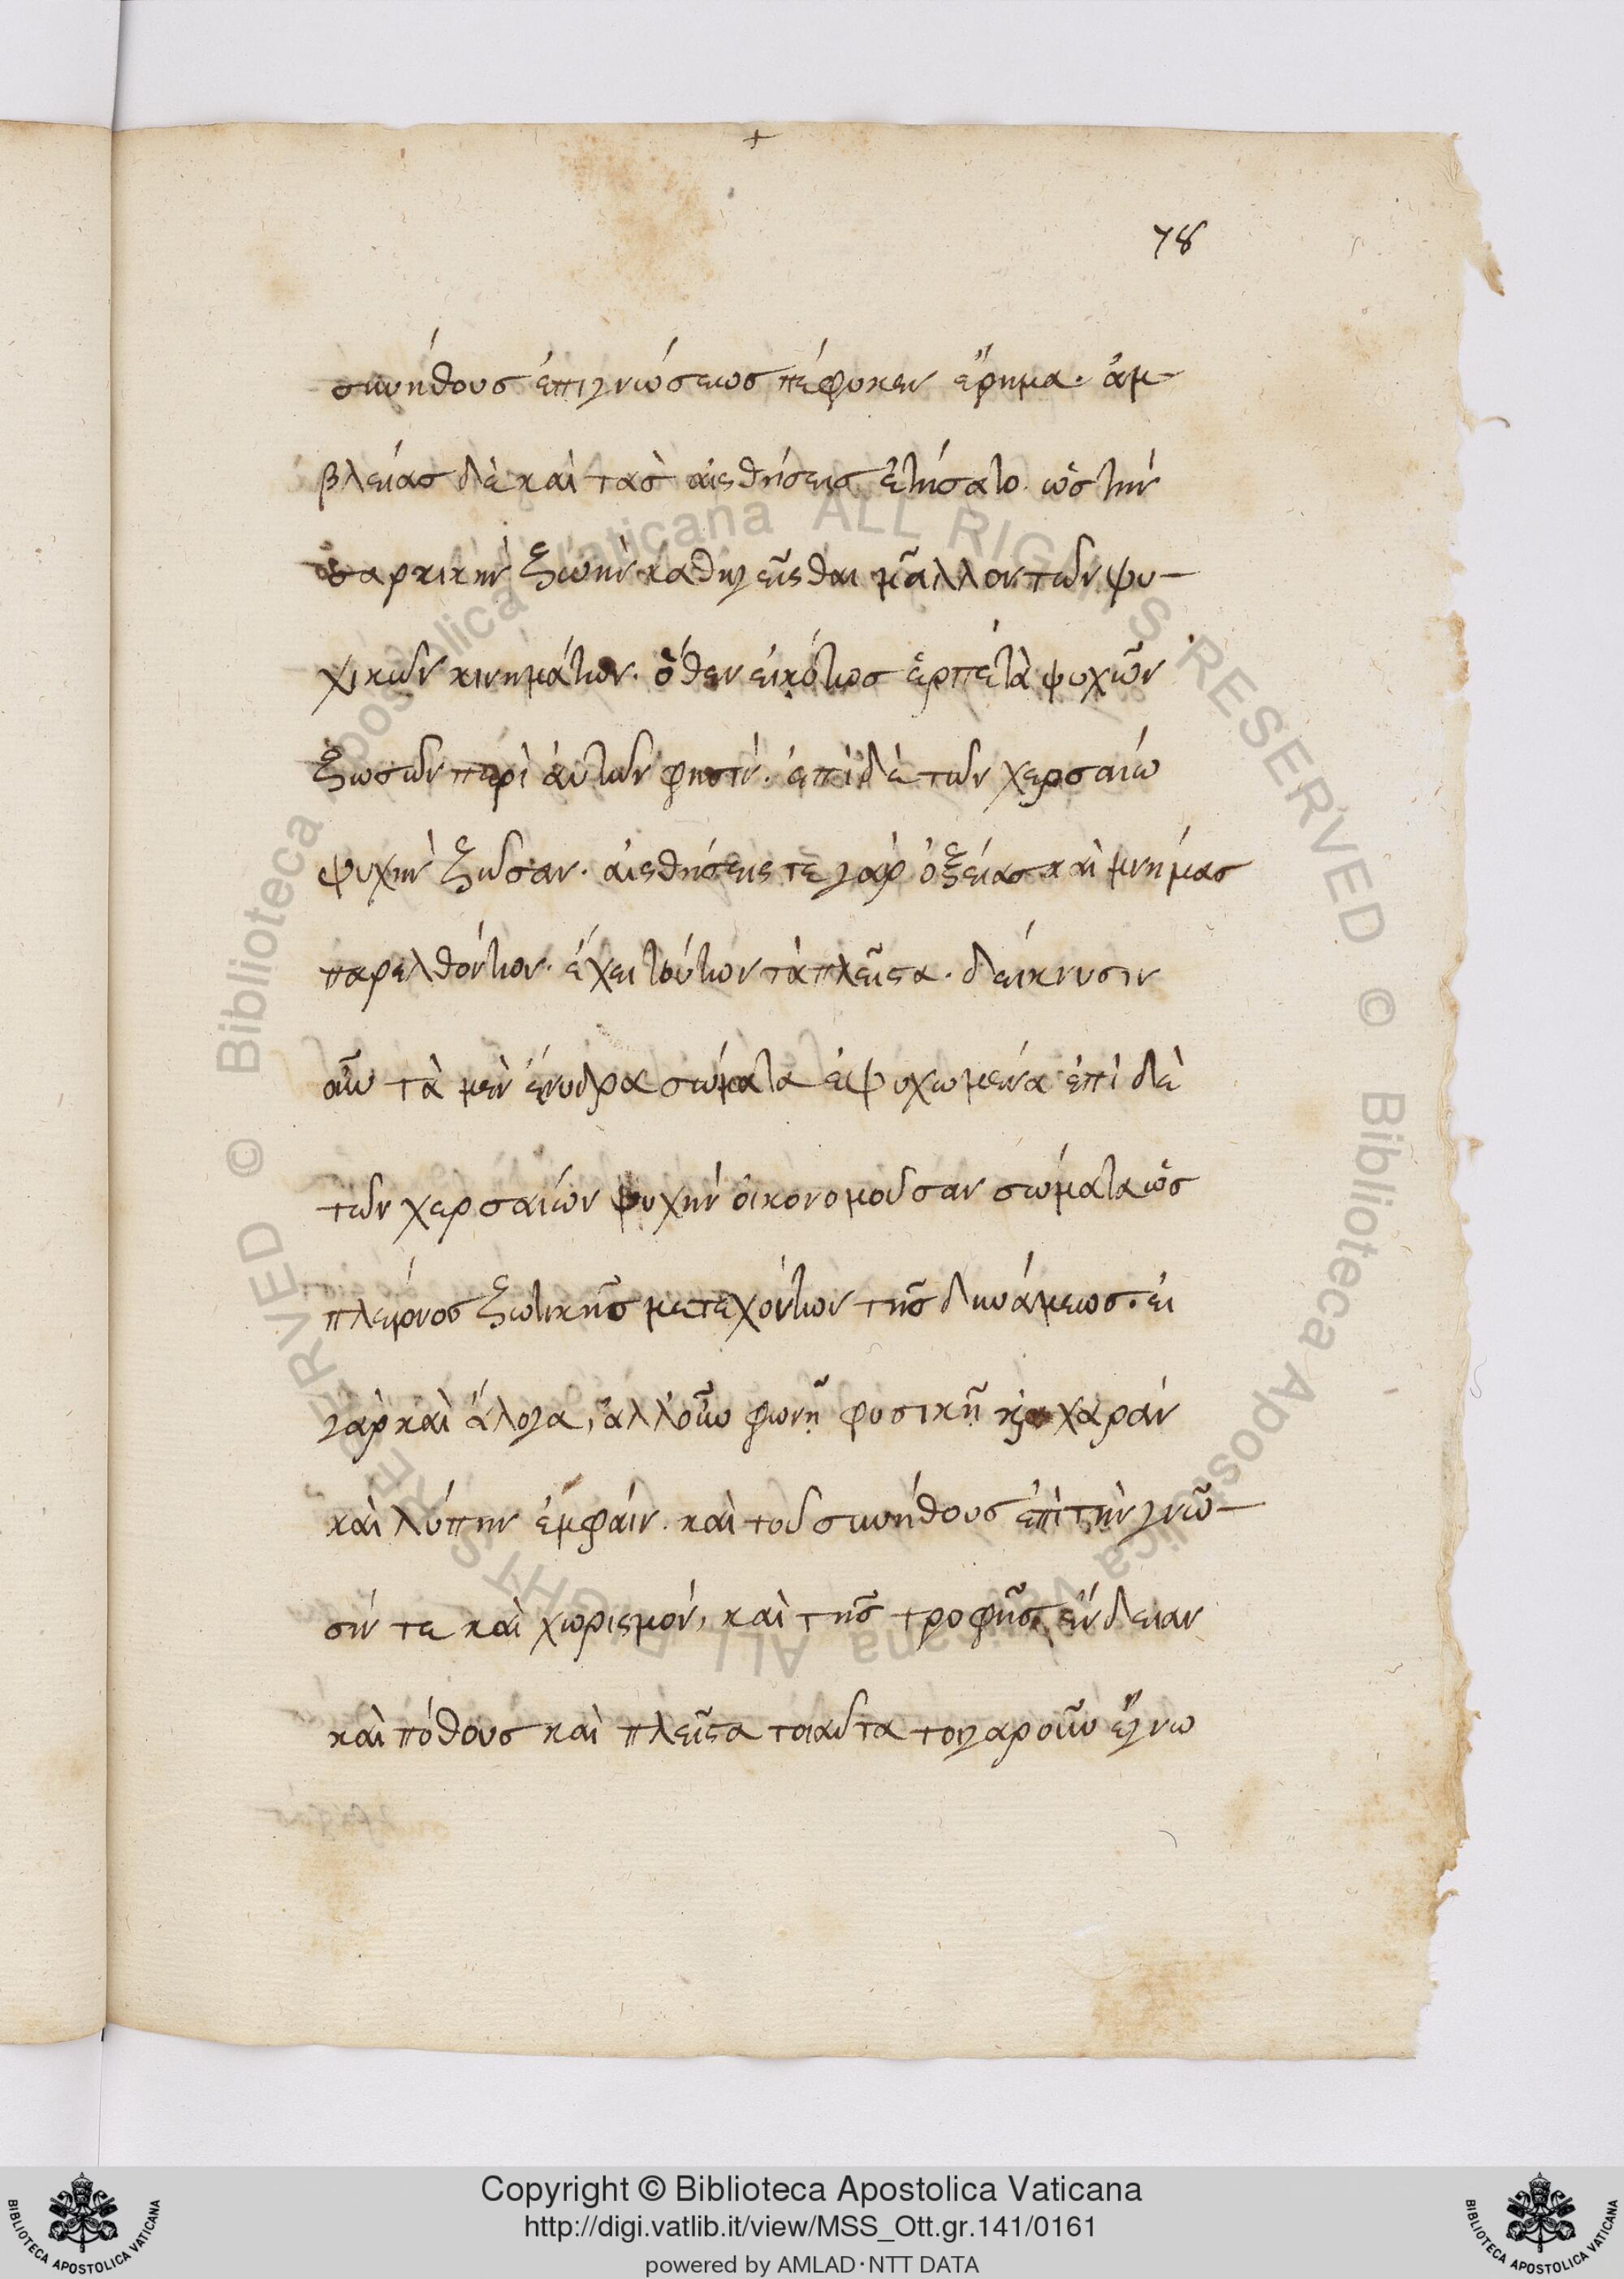 +
78
συνήθους ἐπιγνώσεως πέφυκεν ἔρημα. ἀμ-
βλείας δὲ καὶ τὰς αἰσθήσεις ἐτήσατο. ὡς τὴν
σαρκικὴν ζωὴν καθηγεῖσθαι μᾶλλον τῶν ψυ-
χικῶν κινημάτων. ὅθεν εἰκότως ἑρπετὰ ψυχῶν
ζωσῶν περὶ ἀυτῶν φησίν. ἐπὶ δὲ τῶν χερσαίω
ψυχὴν ζῶσαν. αἰσθήσεις τε γὰρ ὀξείας καὶ μνήμας
παρελθόντων. ἔχει τούτων τὰ πλεῖστα. δείκνυσιν
οὖν τὰ μὲν ἔνυδρα σώματα ἐψυχωμένα ἐπὶ δὲ
τῶν χερσαίων ψυχὴν οἰκονομοῦσαν σώματα ὡς
πλείονος ζωτικῆς μετεχόντων τῆς δυνάμεως. εἰ
γὰρ καὶ ἄλογα, ἀλλ' οὖν φωνῇ φυσικῇ χαρὰν
καὶ λύπην ἐμφαίν. καὶ τοῦ συνήθους ἐπὶ τὴν γνῶ-
σίν τε καὶ χωρισμόν, καὶ τῆς τροφῆς ἔνδειαν
καὶ πόθους καὶ πλεῖστα τοιαῦτα το γαρ οὖν ἔγνω
Copyright © Biblioteca Apostolica Vaticana
http://digi.vatlib.it/view/MSS_Ott.gr.141/0161
powered by AMLAD·NTT DATA
BIBLIOTECA APOSTOLICA VATICANA
BIBLIOTECA APOSTOLICA VATICANA
© Biblioteca Apostolica Vaticana ALL RIGHTS RESERVED © Biblioteca Apostolica Vaticana ALL RIGHTS RESERVED